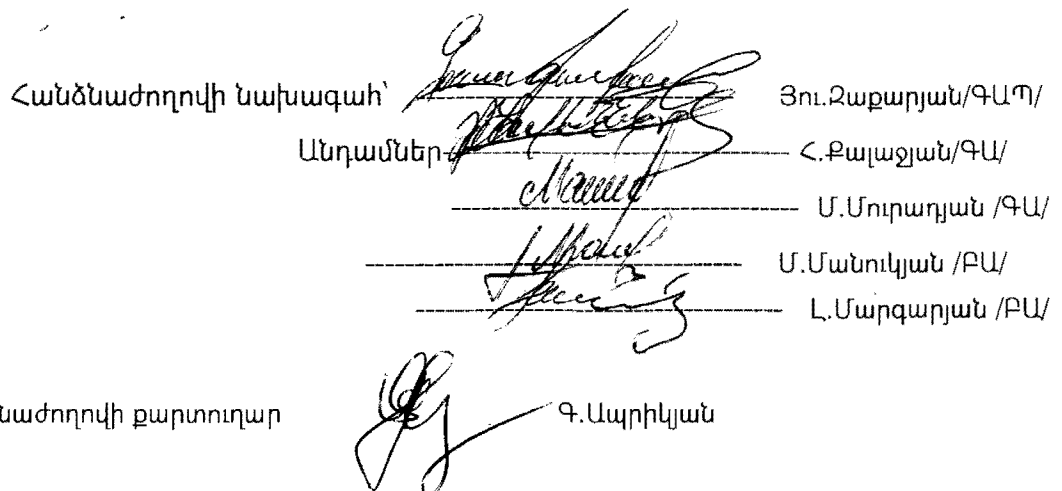 Հանձնաժողովի նախագահ՝ Յու.Զաքարյան/ԳԱՊ/
Անդամներ Հ.Քալաջյան/ԳԱ/
Մ.Մուրադյան /ԳԱ/
Մ.Մանուկյան /ԲԱ/
Լ.Մարգարյան /ԲԱ/
նաժողովի քարտուղար Գ.Ապրիկյան